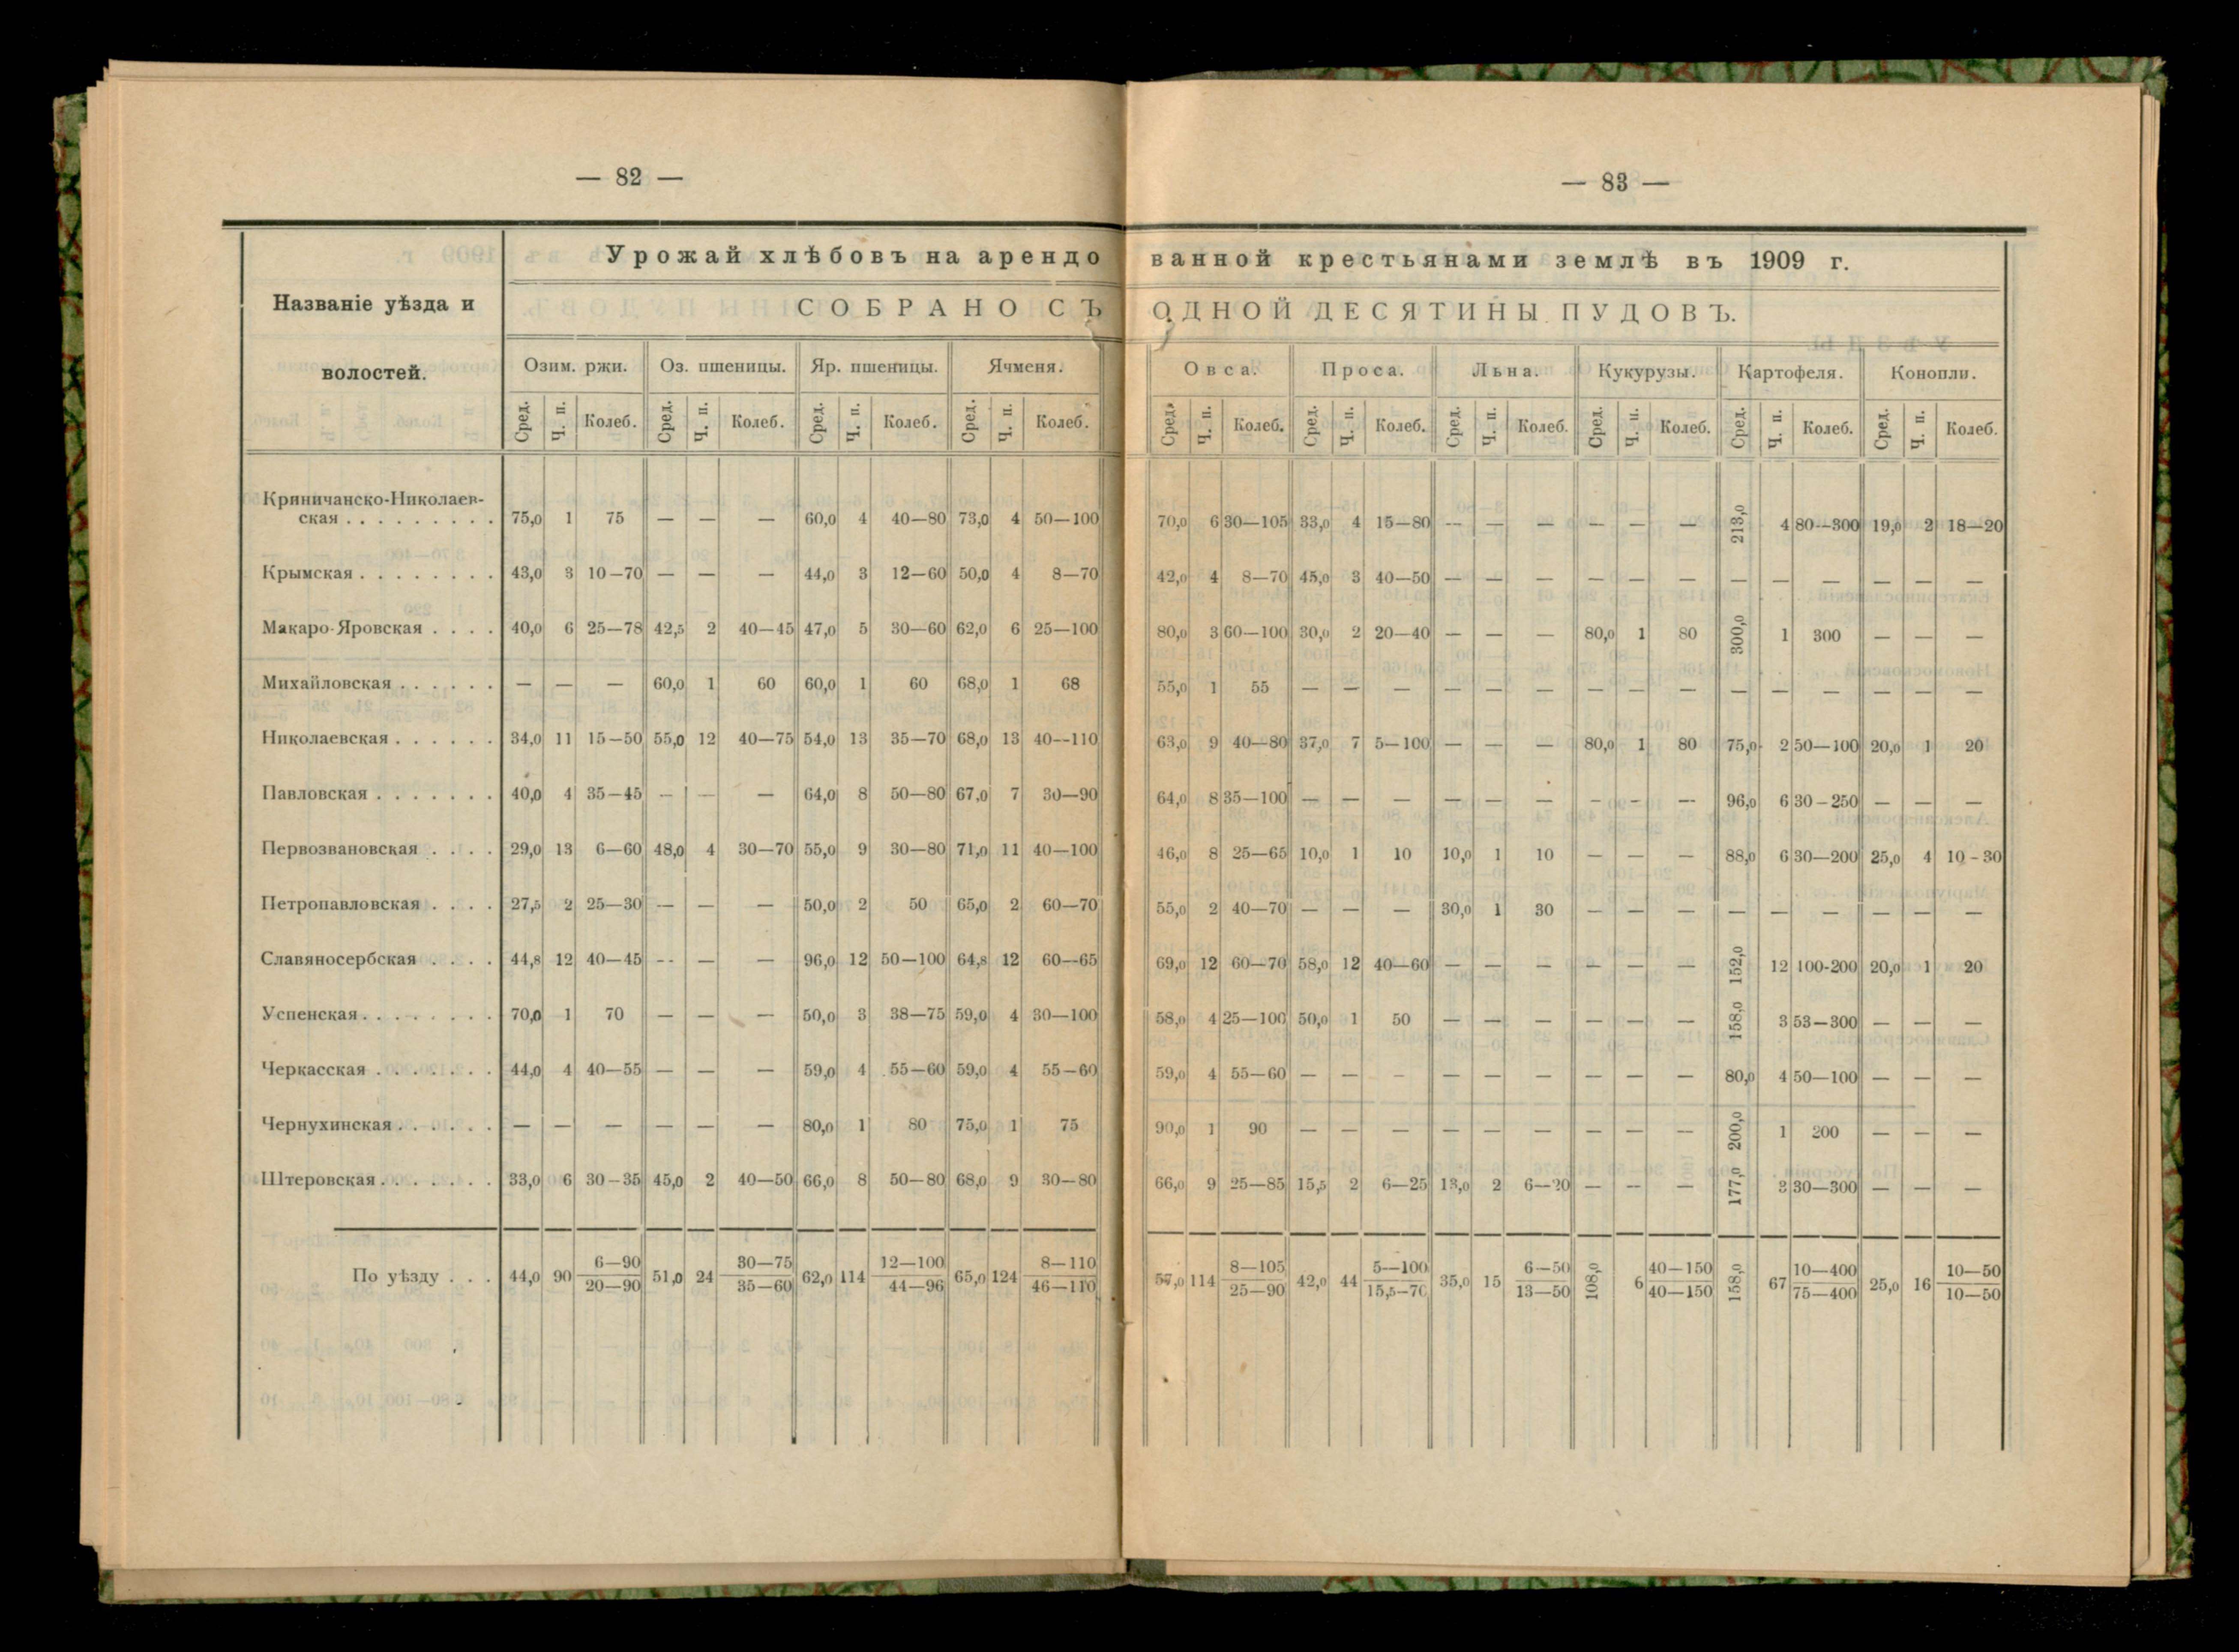 — 82 —
Названіе уѣзда и
волостей.
Урожай хлѣбовъ на арендо
СОБРАНО СЪ
Озим. ржи. Оз. пшеницы. Яр. пшеницы. Ячменя.
Сред. Ч. п. Колеб. Сред. Ч. п. Колеб. Сред. Ч. п. Колеб. Сред. Ч. п. Колеб.
Криничанско-Николаев-
ская . . . . . . . . . 75,0 1 75 — — — 60,0 4 40—80 73,0 4 50—100
Крымская . . . . . . . . 43,0 3 10—70 — — — 44,0 3 12—60 50,0 4 8—70
Макаро-Яровская . . . . 40,0 6 25—78 42,5 2 40—45 47,0 5 30—60 62,0 6 25—100
Михайловская . . . . . . — — — 60,0 1 60 60,0 1 60 68,0 1 68
Николаевская . . . . . . 34,0 11 15—50 55,0 12 40—75 54,0 13 35—70 68,0 13 40—110
Павловская . . . . . . . 40,0 4 35—45 — — — 64,0 8 50—80 67,0 7 30—90
Первозвановская . . . . 29,0 13 6—60 48,0 4 30—70 55,0 9 30—80 71,0 11 40—100
Петропавловская . . . . 27,5 2 25—30 — — — 50,0 2 50 65,0 2 60—70
Славяносербская . . . . 44,8 12 40—45 — — — 96,0 12 50—100 64,8 12 60—65
Успенская . . . . . . . . 70,0 1 70 — — — 50,0 3 38—75 59,0 4 30—100
Черкасская . . . . . . . 44,0 4 40—55 — — — 59,0 4 55—60 59,0 4 55—60
Чернухинская . . . . . . — — — — — — 80,0 1 80 75,0 1 75
Штеровская . . . . . . . 33,0 6 30—35 45,0 2 40—50 66,0 8 50—80 68,0 9 30—80
6—90 30—75 12—100 8—110
По уѣзду . . . 44,0 90 51,0 24 62,0 114 65,0 124
20—90 35—60 44—96 46—110
— 83 —
ванной крестьянами землѣ въ 1909 г.
ОДНОЙ ДЕСЯТИНЫ ПУДОВЪ.
Овса. Проса. Льна. Кукурузы. Картофеля. Конопли.
Сред. Ч. п. Колеб. Сред. Ч. п. Колеб. Сред. Ч. п. Колеб. Сред. Ч. п. Колеб. Сред. Ч. п. Колеб. Сред. Ч. п. Колеб.
70,0 6 30—105 33,0 4 15—80 — — — — — — 213,0 4 80—300 19,0 2 18—20
42,0 4 8—70 45,0 3 40—50 — — — — — — — — — — — —
80,0 3 60—100 30,0 2 20—40 — — — 80,0 1 80 300,0 1 300 — — —
55,0 1 55 — — — — — — — — — — — — — — —
63,0 9 40—80 37,0 7 5—100 — — — 80,0 1 80 75,0 2 50—100 20,0 1 20
64,0 8 35—100 — — — — — — — — — 96,0 6 30—250 — — —
46,0 8 25—65 10,0 1 10 10,0 1 10 — — — 88,0 6 30—200 25,0 4 10-30
55,0 2 40—70 — — — 30,0 1 30 — — — — — — — — —
69,0 12 60—70 58,0 12 40—60 — — — — — — 152,0 12 100-200 20,0 1 20
58,0 4 25—100 50,0 1 50 — — — — — — 158,0 3 53—300 — — —
59,0 4 55—60 — — — — — — — — — 80,0 4 50—100 — — —
90,0 1 90 — — — — — — — — — 200,0 1 200 — — —
66,0 9 25—85 15,5 2 6—25 13,0 2 6—20 — — — 177,0 3 30—300 — — —
8—105 5—100 6—50 40—150 10—400 10—50
57,0 114 42,0 44 35,0 15 108,0 6 158,0 67 25,0 16
25—90 15,5—70 13—50 40—150 75—400 10—50